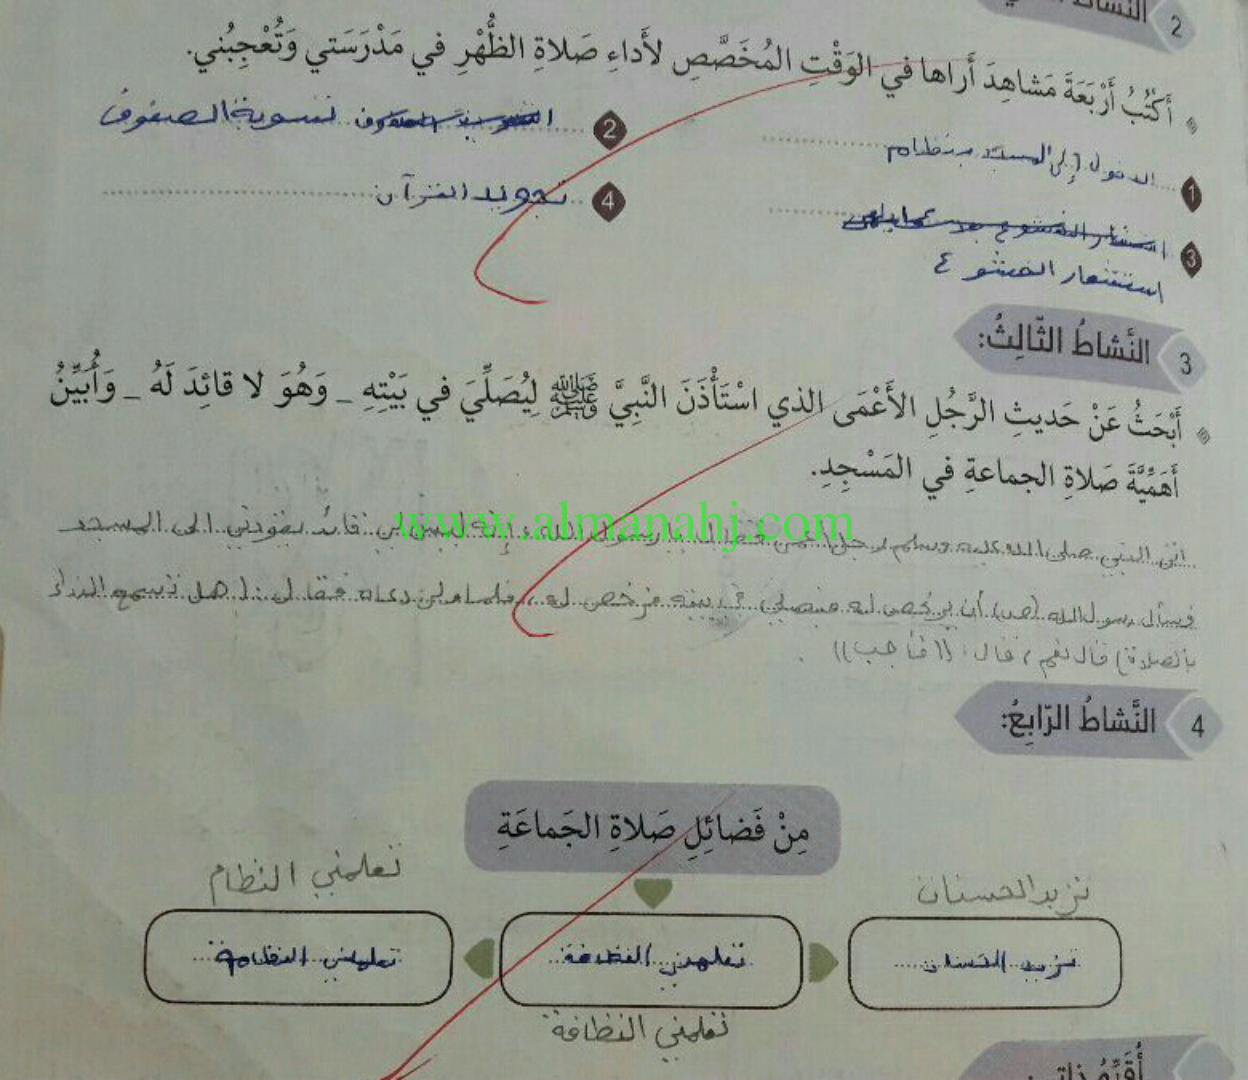 2 النَّشاطُ
أَكْتُبُ أَرْبَعَةَ مَشاهِدَ أَراها في الوَقْتِ المُخَصَّصِ لأَداءِ صَلاةِ الظُّهْرِ في مَدْرَسَتي وَتُعْجِبُني.
1 الدخول إلى المسجد بنظام
2 تسوية الصفوف
3
استشعار الخشوع
4 تجويد القرآن
3 النَّشاطُ الثّالِثُ:
أَبْحَثُ عَنْ حَديثِ الرَّجُلِ الأَعْمَى الذي اسْتَأْذَنَ النَّبِيَّ ﷺ لِيُصَلِّيَ في بَيْتِهِ _ وَهُوَ لا قائِدَ لَهُ _ وَأُبَيِّنُ
أَهَمِّيَّةَ صَلاةِ الجماعةِ في المَسْجِدِ.
www.almanahj.com
اتى النبي صلى الله عليه وسلم رجل أعمى فقال يا رسول الله إنه ليس لي قائد يقودني الى المسجد
فسأل رسول الله (ص) أن يرخص له فيصلي في بيته فرخص له، فلما ولى دعاه فقال: (هل تسمع النداء
بالصلاة) قال نعم، قال: ((فأجب)).
4 النَّشاطُ الرّابِعُ:
مِنْ فَضائِلِ صَلاةِ الجَماعَةِ
تزيد الحسنات
تعلمني النظام
تزيد الحسنات
تعلمني النظافة
تعلمني النظام
تعلمني النظافة